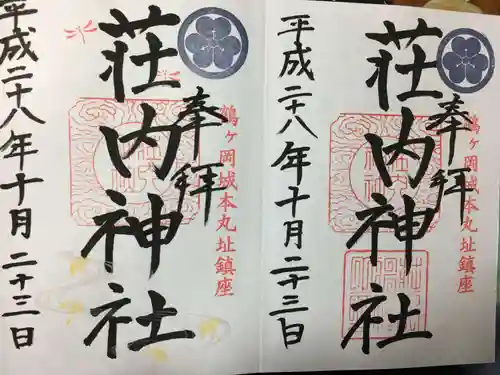 鶴ヶ岡城本丸址鎮座
奉拝
荘内神社
平成二十八年十月二十三日
鶴ヶ岡城本丸址鎮座
奉拝
荘内神社
平成二十八年十月二十三日